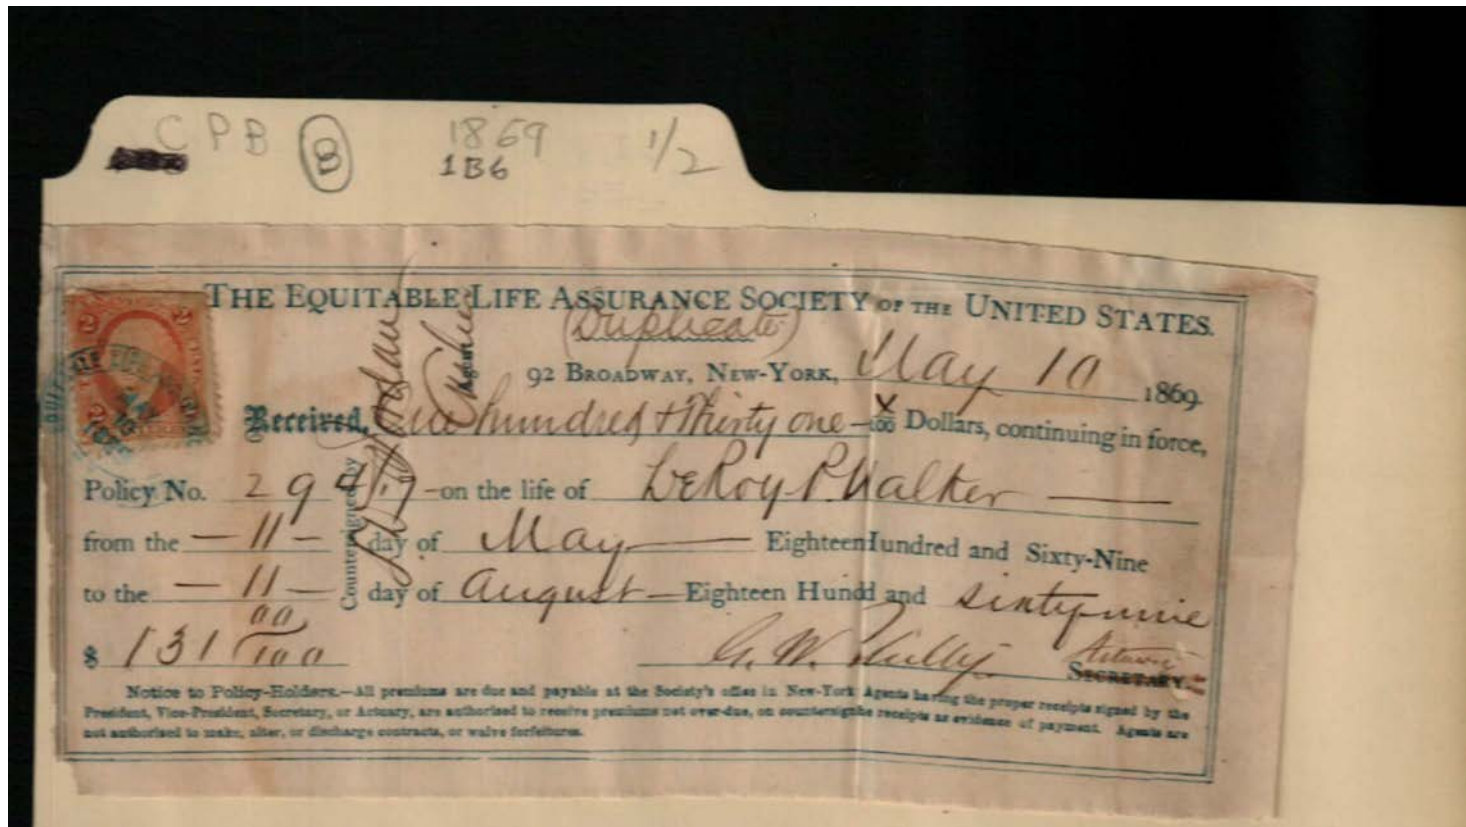 CPB B 1869 1/2
1B6
THE EQUITABLE LIFE ASSURANCE SOCIETY OF THE UNITED STATES.
(Duplicate)
92 BROADWAY, NEW-YORK, May 10 1869.
Received, One hundred & Thirty one - x/100 Dollars, continuing in force,
Policy No. 294 - on the life of LeRoy P. Walker
from the - 11 - day of May Eighteen Hundred and Sixty-Nine
to the - 11 - day of August - Eighteen Hundd and sixty-nine
$ 131 00/100 G. W. Phillips Actuary SECRETARY.
Notice to Policy-Holders.—All premiums are due and payable at the Society's office in New-York Agents having the proper receipts signed by the
President, Vice-President, Secretary, or Actuary, are authorised to receive premiums not over-due, on countersigning receipts as evidence of payment. Agents are
not authorised to make, alter, or discharge contracts, or waive forfeitures.
Countersigned by
2 2
2